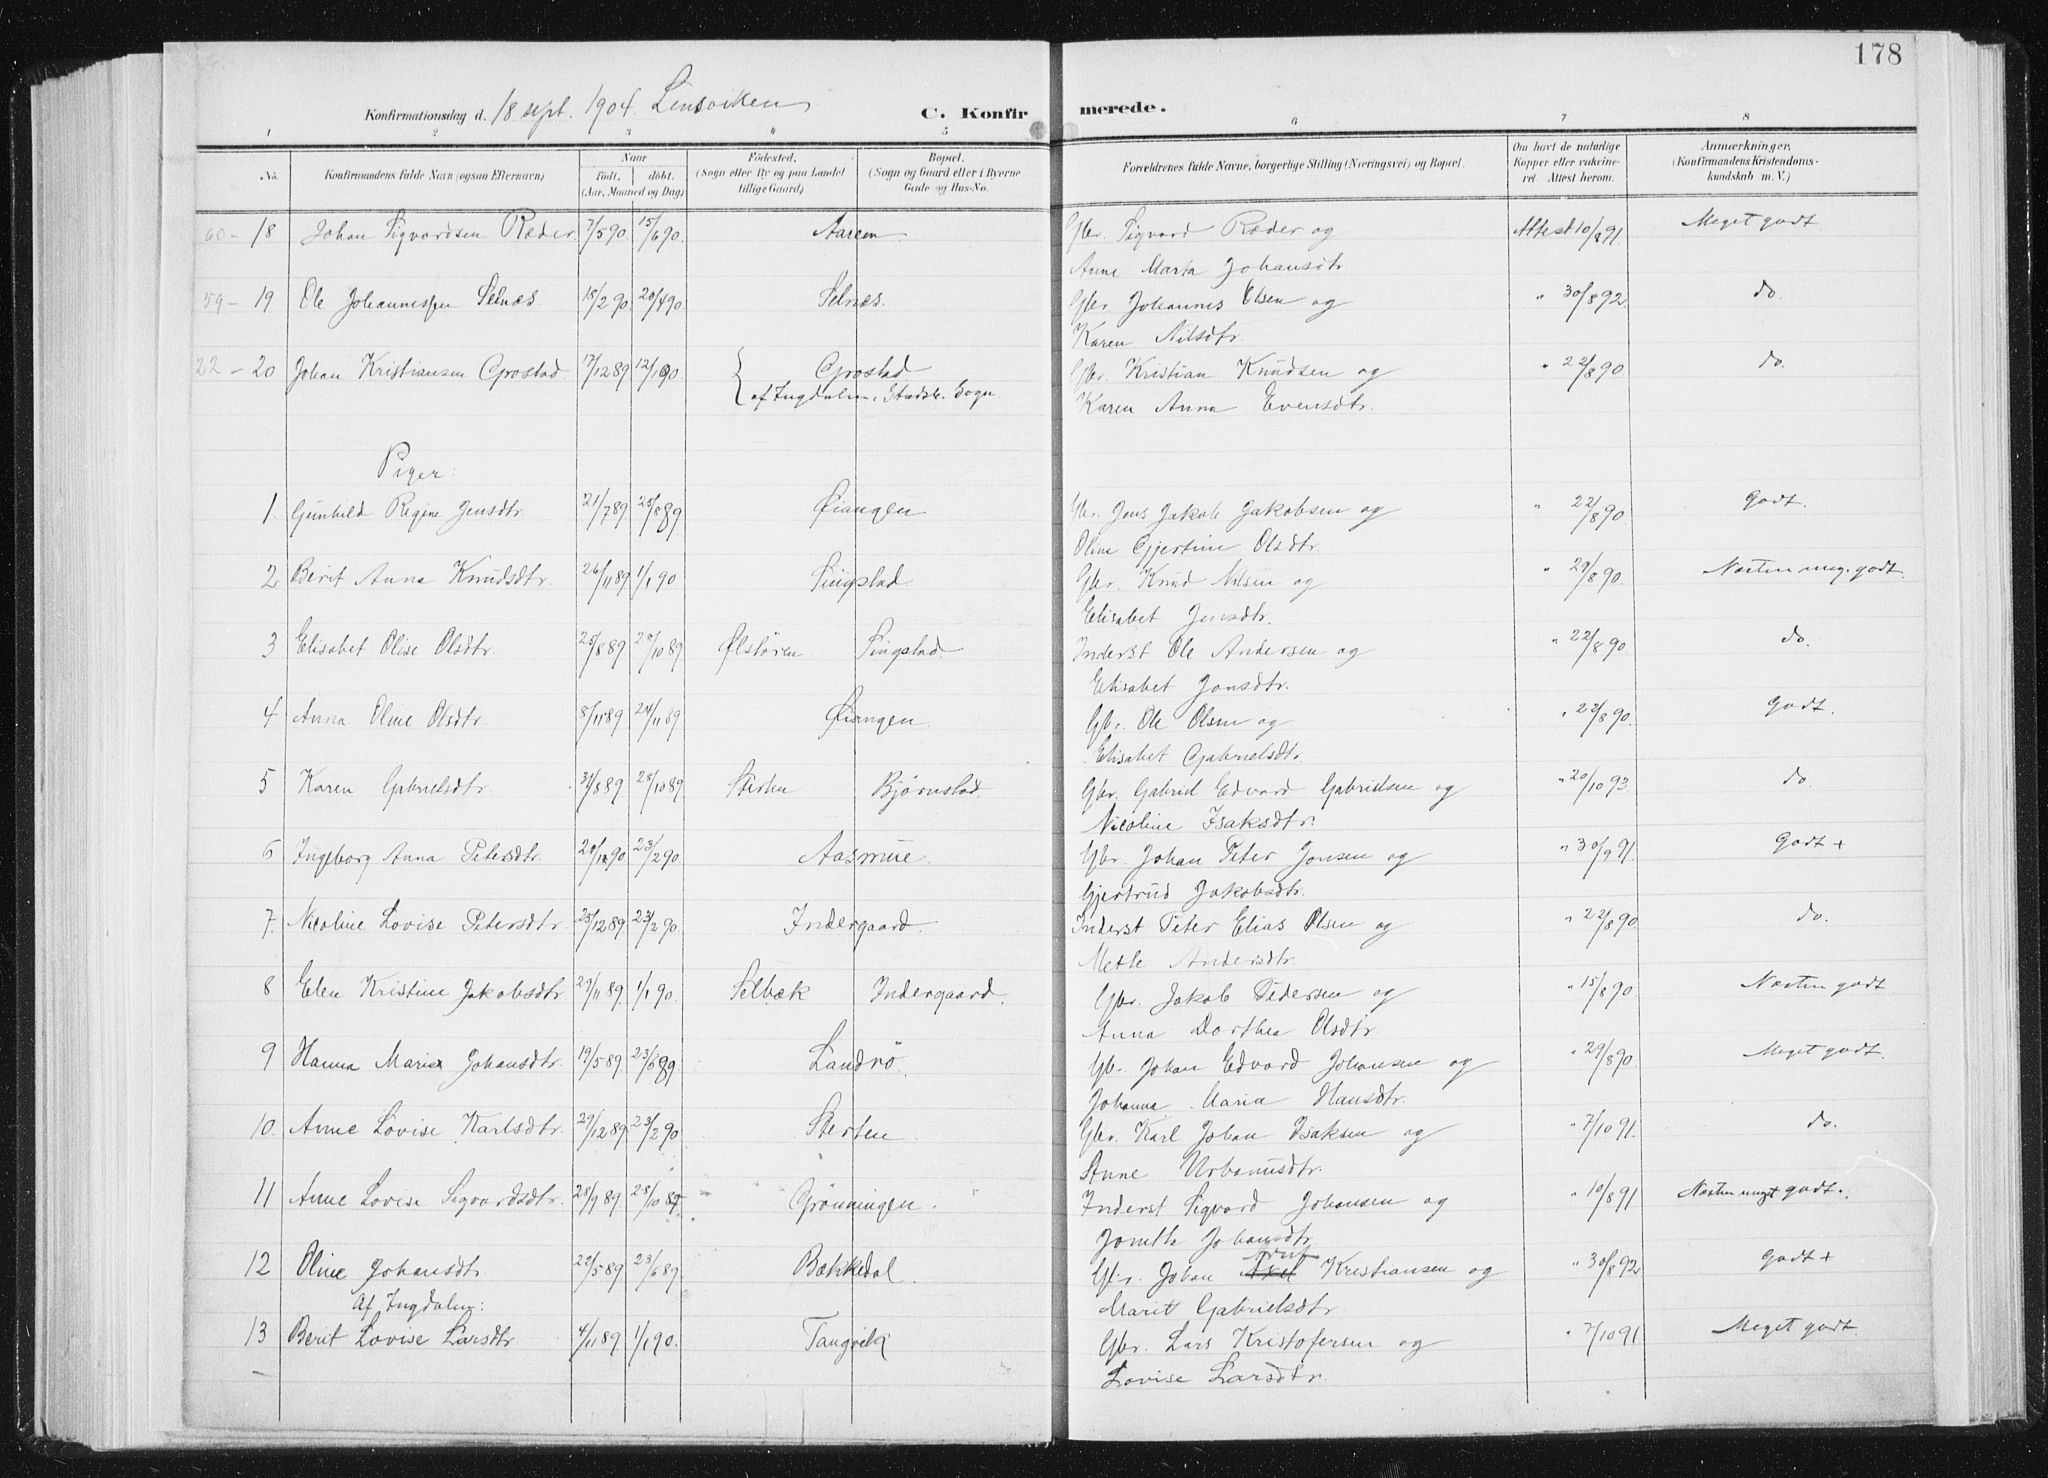 178
Konfirmationsdag d. 18 sept. 1904. Lensviken C. Konfirmerede.
1 2 3 4 5 6 7 8
No. Konfirmandens fulde Navn (ogsaa Efternavn) Naar født, døbt. (Aar, Maaned og Dag) Fødested. (Sogn eller By og paa Landet tillige Gaard) Bopæl. (Sogn og Gaard eller i Byerne Gade og Hus-No. Forældrenes fulde Navne, borgerlige Stilling (Næringsvei) og Bopæl. Om havt de naturlige Kopper eller vakcineret. Attest herom. Anmærkninger. (Konfirmandens Kristendomskundskab m. V.)
60 - 18 Johan Sigvardsen Ræder 7/5 90 15/6 90. Aarem Gbr. Sigvard Ræder og Attest 10/8 91. Meget godt
Anne Marta Johansdtr.
59 - 19 Ole Johannessen Selnæs 15/2 90 20/4 90 Selnæs. Gbr. Johannes Olsen og " 30/8 92. do.
Karen Nilsdtr.
22 - 20 Johan Kristiansen Grostad 17/12 89 12/1 90 Grostad Gbr. Kristian Knudsen og " 22/8 90 do.
af Ingdalen, Stadsb. Sogn. Karen Anna Evensdtr.
Piger:
1. Gunhild Regine Jensdtr. 21/7 89 25/8 89 Øiangen Gbr. Jens Jakob Jakobsen og " 22/8 90. Godt.
Oline Gjertine Olsdtr.
2 Berit Anna Knudsdtr. 26/11 89 1/1 90 Singstad. Gbr. Knud Nilsen og " 29/8 90. Næsten meg. godt.
Elisabet Jensdtr.
3 Elisabet Olise Olsdtr. 25/8 89 20/10 89 Ølstøren. Singstad. Inderst Ole Andersen og " 22/8 90 do.
Elisabet Jonsdtr.
4 Anna Oline Olsdtr. 8/11 89 24/11 89 Øiangen. Gbr. Ole Olsen og " 22/8 90. Godt.
Elisabet Gabrielsdtr.
5 Karen Gabrielsdtr. 31/8 89 28/10 89 Sterten Bjørnstad. Gbr. Gabriel Edvard Gabrielsen og " 20/10 93. do.
Nicoline Isaksdtr.
6 Ingeborg Anna Petersdtr. 20/1 90 23/2 90. Aasmue. Gbr. Johan Peter Jonsen og " 30/9 91. Godt +
Gjertrud Jakobsdtr.
7. Nicoline Lovise Petersdtr. 25/12 89 23/2 90. Indergaard. Inderst Peter Elias Olsen og " 22/8 90. do.
Mette Andersdtr.
8 Elen Kristine Jakobsdtr. 29/11 89. 1/1 90. Selbæk Indergaard. Gbr. Jakob Pedersen og " 15/8 90 Næsten godt
Anna Dorthea Olsdtr.
9 Hanna Marie Johansdtr. 19/5 89. 23/6 89. Landrö. Gb. Johan Edvard Johansen og " 29/8 90. Meget godt.
Johanna Maria Hansdtr.
10. Anne Lovise Karlsdtr. 29/12 89. 23/2 90 Sterten Gbr. Karl Johan Isaksen og " 7/10 91. do.
Anne Urbanusdtr.
11 Anne Lovise Sigvardsdtr. 28/9 89 28/10 89. Grönningen. Inderst Sigvard Johansen og " 10/8 91 Næsten meget godt.
Jonetta Johansdtr.
12 Oline Johansdtr. 22/5 89 23/6 89. Bækkedal. Gbr. Johan Axel Kristiansen og " 30/8 92 Godt +
Af Ingdalen: Marit Gabrielsdtr.
13 Berit Lovise Larsdtr. 4/11 89. 1/1 90. Tangvik Gbr. Lars Kristofersen og " 7/10 91 Meget godt.
Lovise Larsdtr.